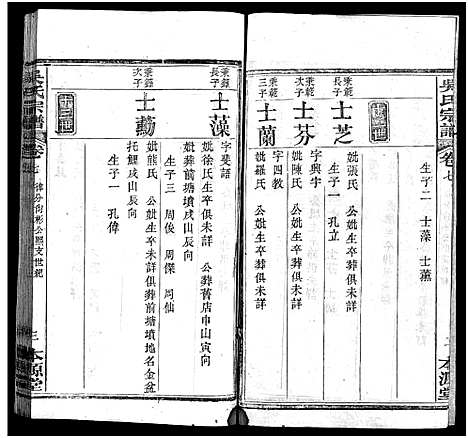 吳氏宗譜
卷七
三 本源堂
生子二 士藻 士薰
秉乾長子
士芝
妣張氏 公妣生卒葬俱未詳
生子一 孔立
士芬
字興宇
妣陳氏 公妣生卒葬俱未詳
秉乾三子
士蘭
字四教
妣羅氏 公妣生卒葬俱未詳
秉鐸長子
士藻
字斐語
妣徐氏生卒俱未詳 公葬舊店申山寅向
妣葬前塘墳戍山辰向
生子三 周俊 周傑 周仙
秉鐸次子
士勳
妣熊氏 公妣生卒未詳俱葬前塘墳地名金盆
托鯉戍山辰向
生子一 孔偉
吳氏宗譜
卷七
律分尚彬公熙支世紀
三 本源堂